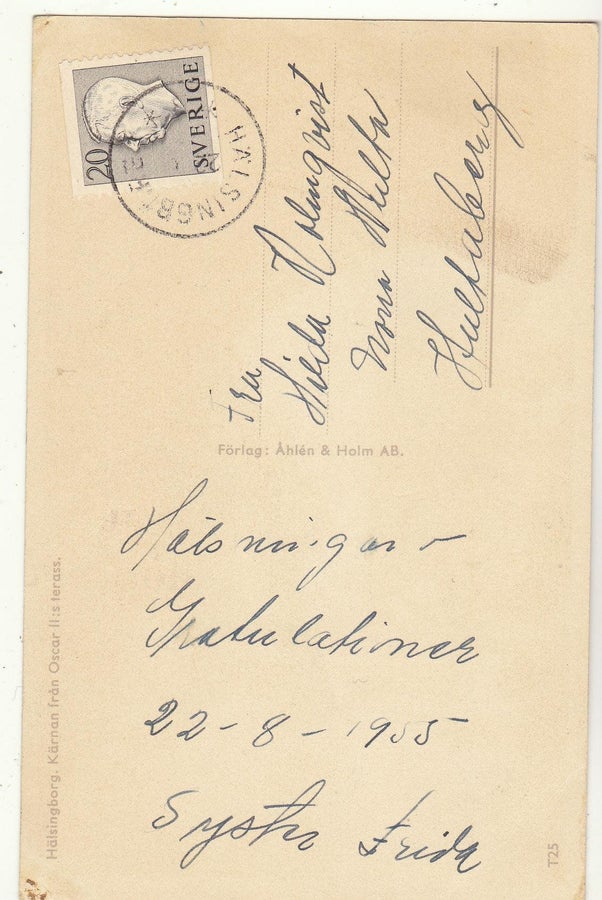 20
SVERIGE
HÄLSINGBORG
Fru
Hilda Holmqvist
Norra Hulta
Hultaberg
Förlag: Åhlén & Holm AB.
Hälsningar o
Gratulationer
22-8-1955
Syster Frida
Hälsingborg. Kärnan från Oscar II:s terass.
T25